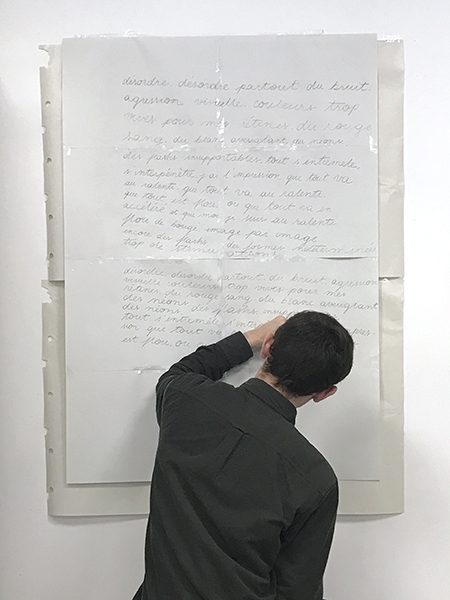 désordre désordre partout du bruit.
agression visuelle couleurs trop
vives pour mes rétines du rouge
sang du blanc aveuglant des néons
des flashs insupportables. tout s'entremêle,
s'interpénètre, j'ai l'impression que tout va
au ralenti que tout va au ralenti
que tout est flou. ou que tout est en
accéléré et que moi je suis au ralenti
flou de bouge image par image
encore des flashs du formes indéterminées
trop de stimulations
désordre désordre partout du bruit agression
visuelle couleurs trop vives pour mes
rétines du rouge sang du blanc aveuglant
des néons des flashs
tout s'entremêle s'inter
sion que tout va
est flou. ou